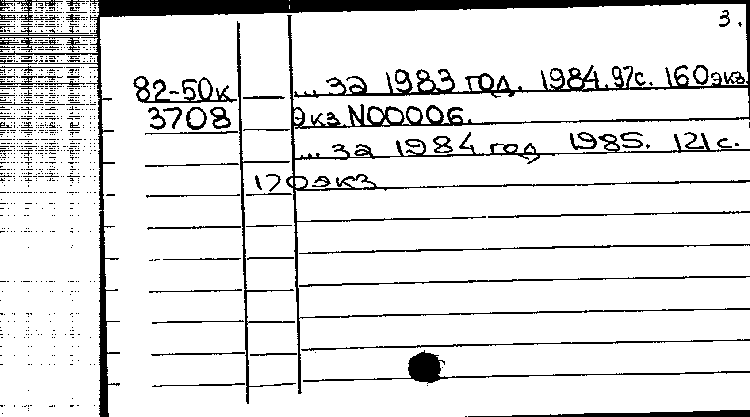 3.
82-50к ... за 1983 год. 1984. 97с. 160экз.
3708 Экз N00006.
... за 1984 год 1985. 121с.
170экз